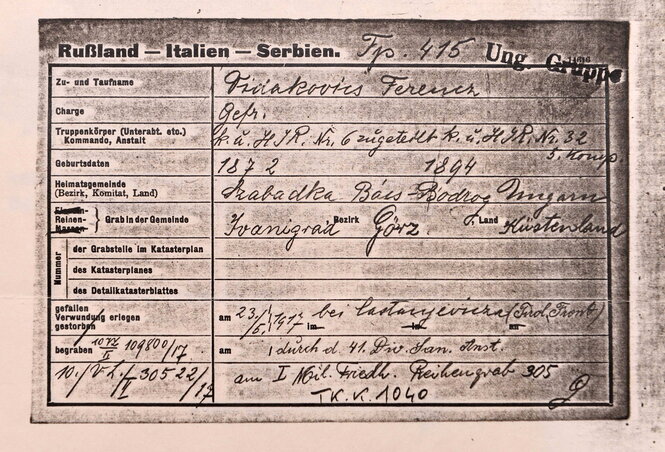 Rußland — Italien — Serbien. Fp. 415 Ung. Gruppe
Zu- und Taufname Vidakovics Ferencz
Charge Gefr.
Truppenkörper (Unterabt. etc.) k. u. H.I.R. Nr. 6 zugeteilt k. u. H.I.R. Nr. 32
Kommando, Anstalt 5. Komp.
Geburtsdaten 1872 1894
Heimatsgemeinde Szabadka Bács-Bodrog Ungarn
(Bezirk, Komitat, Land)
Einzeln-
Reihen- Grab in der Gemeinde Ivanigrad Bezirk Görz Land Küstenland
Massen-
Nummer
der Grabstelle im Katasterplan
des Katasterplanes
des Detailkatasterblattes
gefallen
Verwundung erlegen am 23/5 1917 bei Castagnevizza (Tirol. Front)
gestorben im in an
begraben 109800/17 am durch d. 41. Div. San. Anst.
10./V.L./I 30522/17 am I Mil. Friedh. Reihengrab 305
T.K.K. 1040